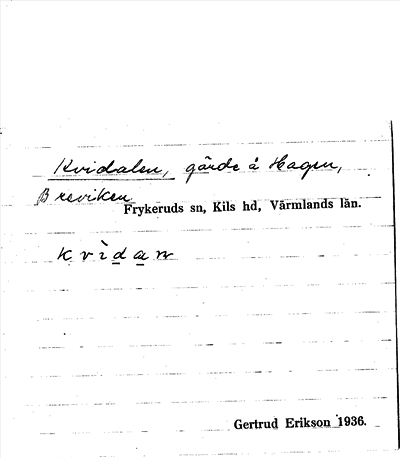 Kvidalen, gärde å Hagen,
Breviken
Frykeruds sn, Kils hd, Värmlands län.
kvìdan
Gertrud Erikson 1936.